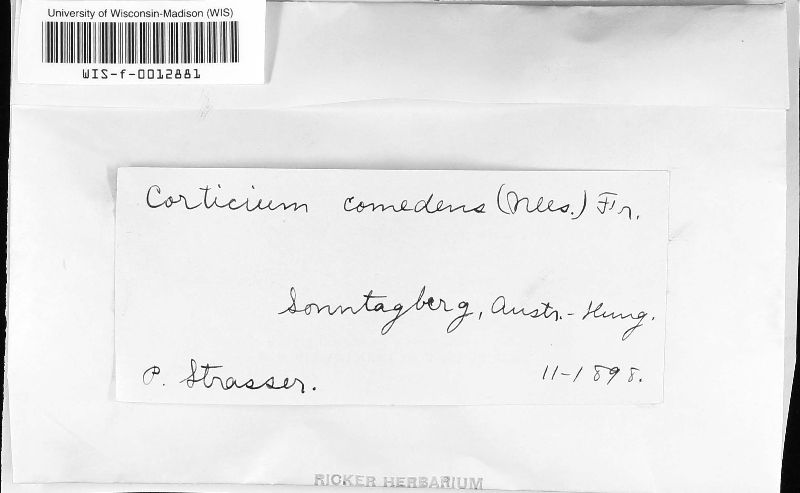 University of Wisconsin-Madison (WIS)
WIS-f-0012881
Corticium comedens (Nees.) Fr.
Sonntagberg, Austr.-Hung.
P. Strasser. 11-1898.
RICKER HERBARIUM